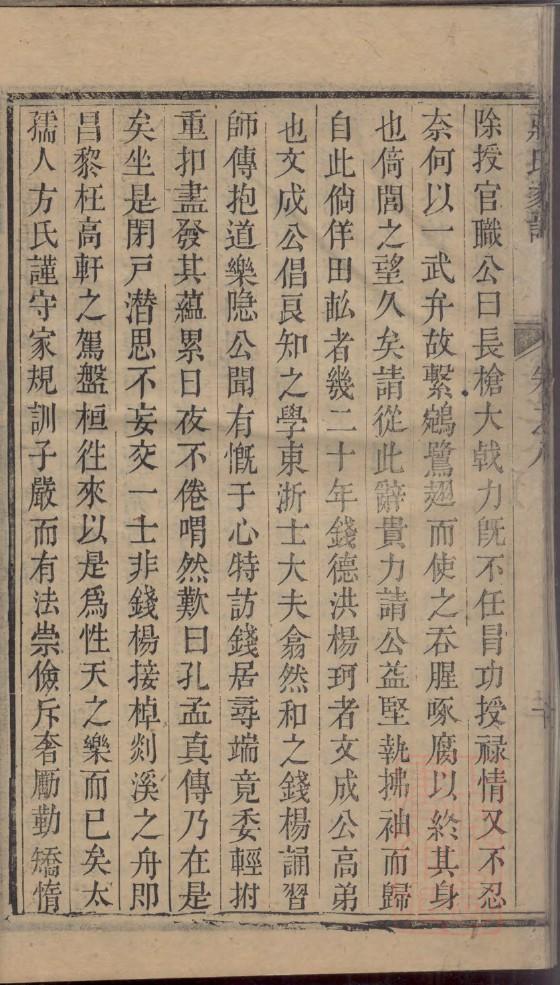 除授官職公曰長槍大戟力旣不任冒功授祿情又不忍
奈何以一武弁故繫鵷鷺翅而使之吞腥啄腐以終其身
也倚閭之望久矣請從此辭貴力請公益堅執拂袖而歸
自此徜徉田畆者幾二十年錢德洪楊珂者文成公高弟
也文成公倡良知之學東浙士大夫翕然和之錢楊誦習
師傳抱道樂隐公聞有慨于心特訪錢居尋端竟委輕拊
重扣盡發其蘊累日夜不倦喟然歎曰孔孟真傳乃在是
矣坐是閉戸潛思不妄交一士非錢楊接棹剡溪之舟即
昌黎枉高軒之駕盤桓徃來以是爲性天之樂而已矣太
孺人方氏謹守家規訓子嚴而有法崇儉斥奢勵勤矯惰